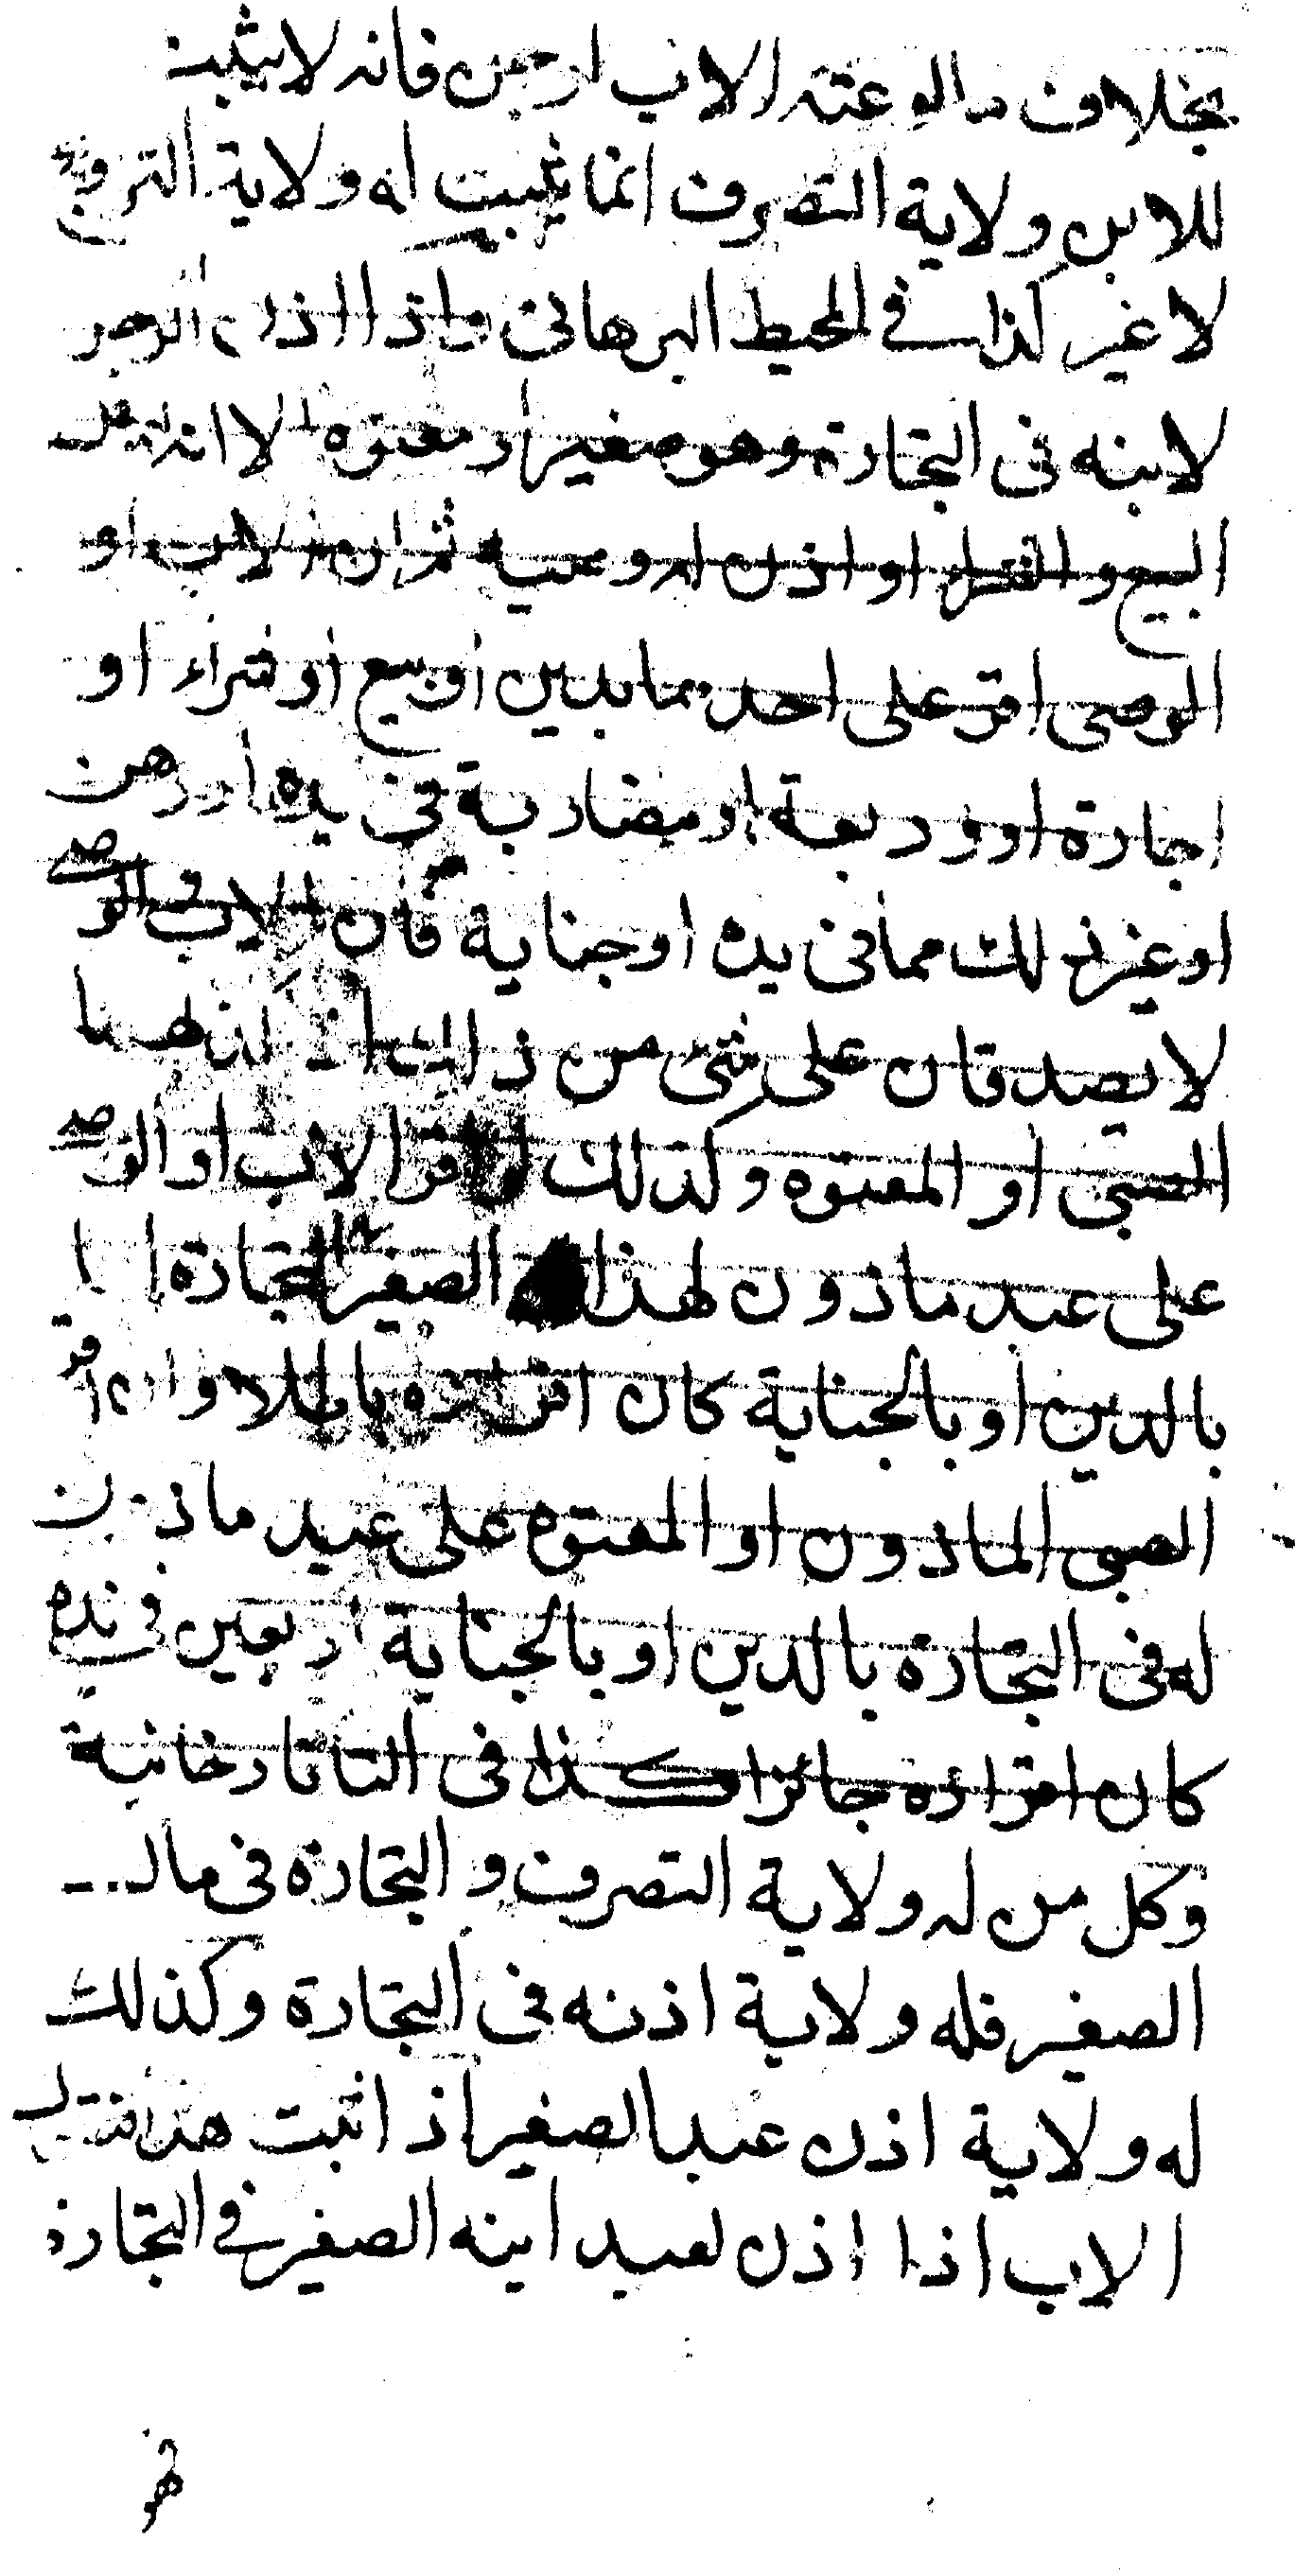 بخلاف ما لو عته الاب او جن فانه لا يثبت
للابن ولاية التصرف انما يثبت له ولاية التزويج
لا غير كذا في المحيط البرهاني واذا اذن الوصى
لابنه في التجارة وهو صغير او معتوه الا انه يعقل
البيع والشراء او اذن له وصيه ثم ان الاب او
الوصى اقر على احدهما بدين او بيع او شراء او
اجارة او وديعة او مضاربة في يده او رهن
او غير ذلك مما في يده او جناية فان الاب والوصى
لا يصدقان على شئ من ذلك
الصبى او المعتوه وكذلك لو اقر الاب او الوصى
على عبد ماذون لهذا الصغير التجارة
بالدين او بالجناية كان اقراره باطلا وان اقر
الصبى الماذون او المعتوه على عبد ماذون
له في التجارة بالدين او بالجناية او بعين في يده
كان اقراره جائزا كذا في التاتارخانية
وكل من له ولاية التصرف والتجارة في مال
الصغير فله ولاية اذنه في التجارة وكذلك
له ولاية اذن عبد الصغير اذا ثبت هذا فنقول
الاب اذا اذن لعبد ابنه الصغير في التجارة
فهو